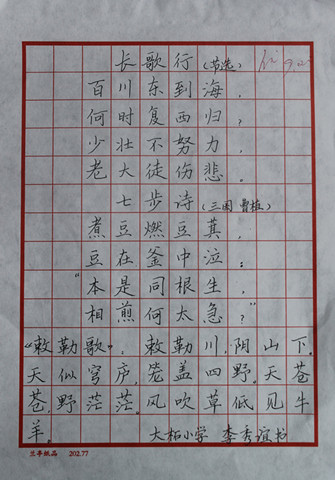 长歌行(节选) 优 92
百川东到海,
何时复西归?
少壮不努力,
老大徒伤悲。
七步诗(三国 曹植)
煮豆燃豆萁,
豆在釜中泣:
"本是同根生,
相煎何太急?"
"敕勒歌":敕勒川,阴山下。
天似穹庐,笼盖四野。天苍
苍,野茫茫。风吹草低见牛
羊。 大柘小学 李秀谊书
兰亭纸品 202.77